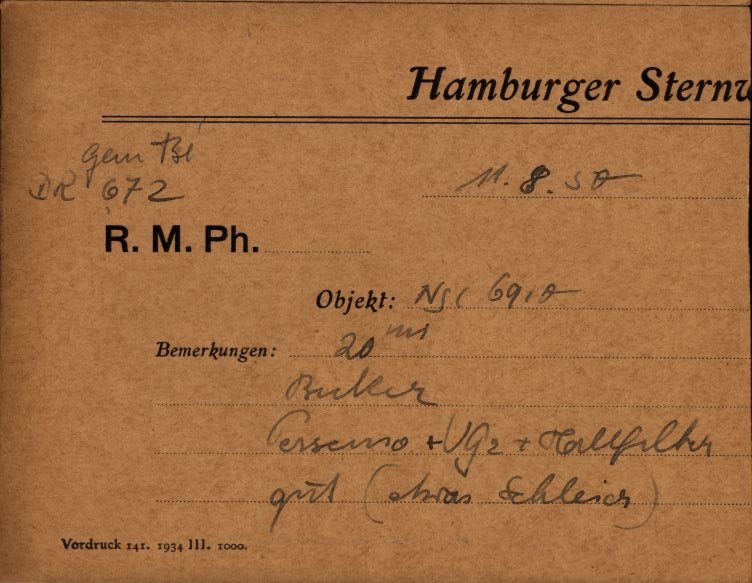 Hamburger Sternw
gem Bl
DR 672
11. 8. 50
R. M. Ph.
Objekt: NGC 6910
Bemerkungen: 20 min
Becker
Persenso + VG2 + Hallfilter
gut (etwas Schleier)
Vordruck 141. 1934 III. 1000.